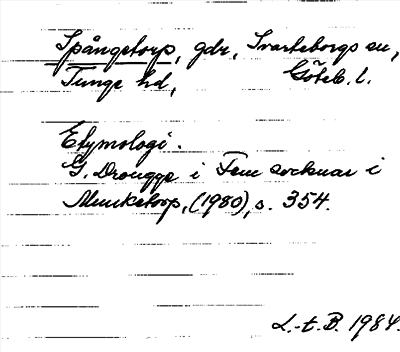 Spångetorp, gdr, Svarteborgs sn,
Tunge hd, Göteb. l.
Etymologi.
G. Drougge i Fem socknar i
Munkedorp, (1980), s. 354.
L.-t. B. 1984.